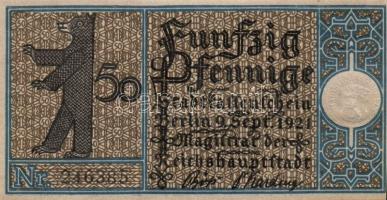 Fünfzig
50 Pfennige
Stadtkassenschein
Berlin, 9. Sept. 1921
Magistrat der
Reichshauptstadt
Nr. 246385